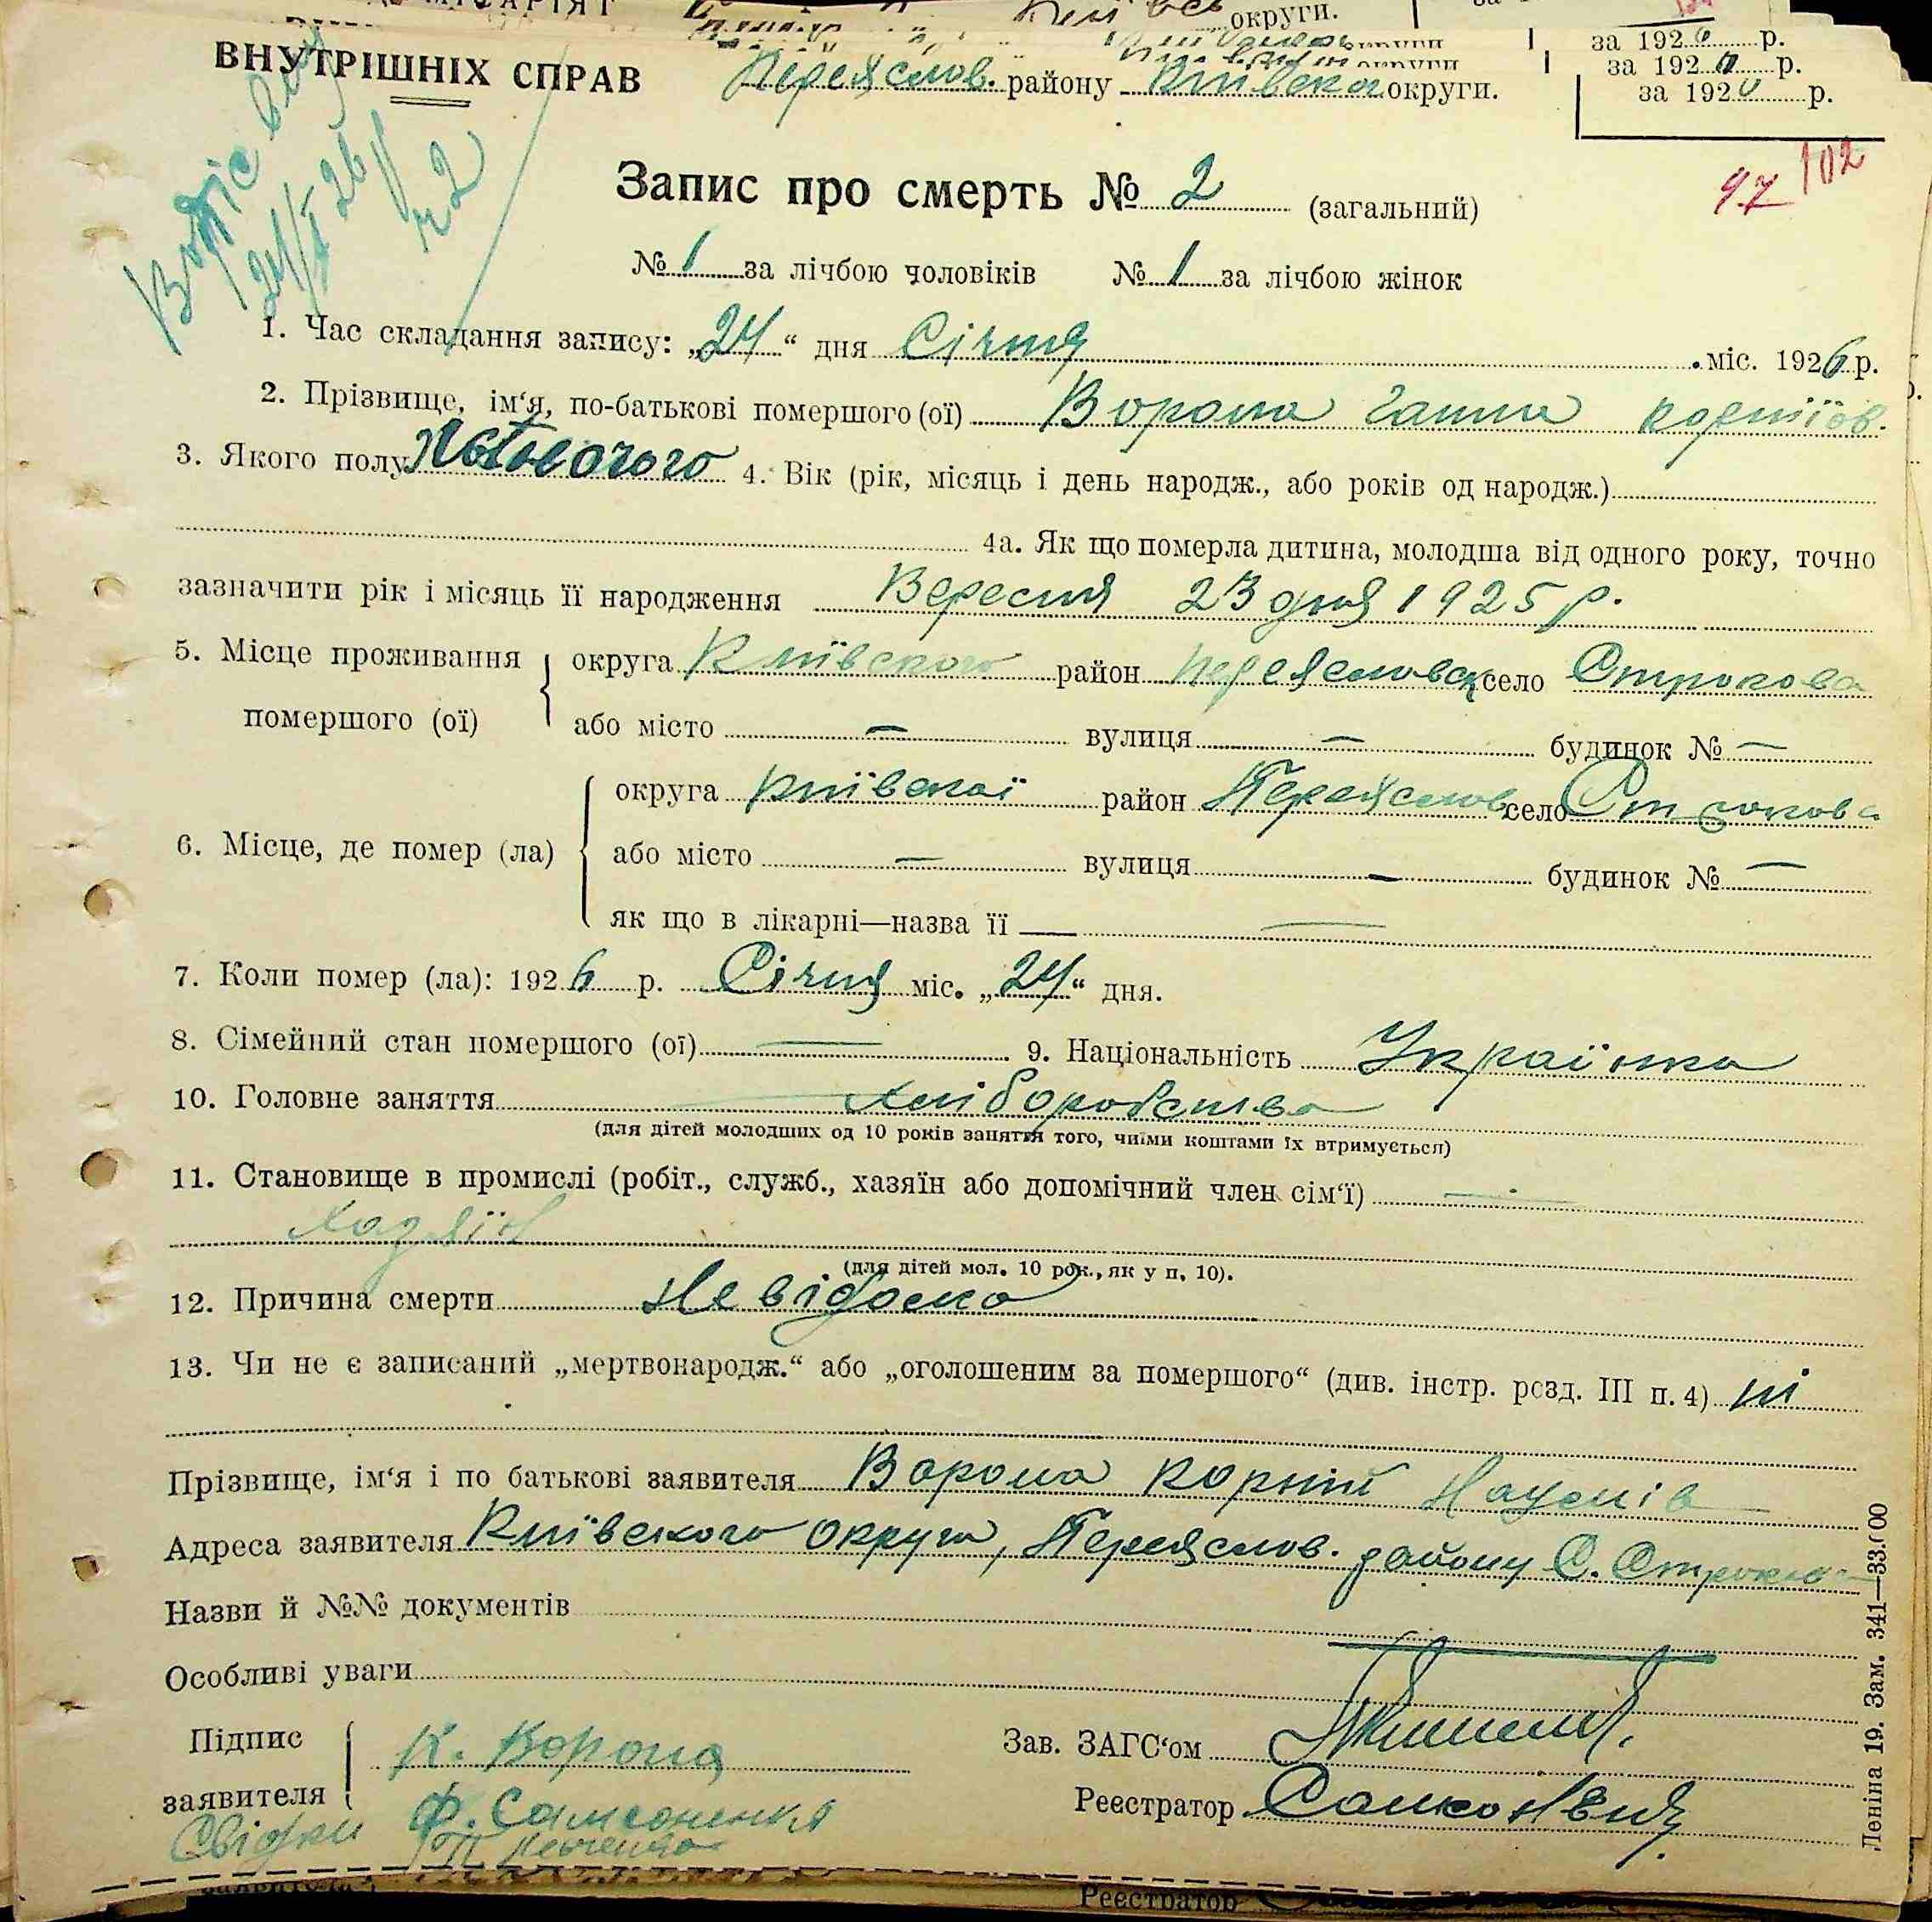 округи.
за 192 р.
за 192 р.
ВНУТРІШНІХ СПРАВ Переяслов. району Київской округи.
за 192 р.
97 102
Запис про смерть № 2 (загальний)
№ 1 за лічбою чоловіків № 1 за лічбою жінок
1. Час складання запису: „24“ дня Січня міс. 1926 р.
2. Прізвище, ім‘я, по-батькові помершого (ої) Ворона Ганна Корніїов.
3. Якого полу Жіночого 4. Вік (рік, місяць і день народж., або років од народж.)
4а. Як що померла дитина, молодша від одного року, точно
зазначити рік і місяць її народження Вересня 23 дня 1925 р.
5. Місце проживання помершого (ої) округа Київского район Переясловск село Строкова
або місто — вулиця — будинок № —
6. Місце, де помер (ла) округа Київскої район Переяслов село Строкова
або місто — вулиця — будинок № —
як що в лікарні—назва її —
7. Коли помер (ла): 1926 р. Січня міс. „24“ дня.
8. Сімейний стан помершого (ої) — 9. Національність Українка
10. Головне заняття Хліборобство
(для дітей молодших од 10 років заняття того, чиїми коштами їх втримується)
11. Становище в промислі (робіт., служб., хазяїн або допомічний член сім‘ї) —
Хазяїн
(для дітей мол. 10 рок., як у п. 10).
12. Причина смерти Невідома
13. Чи не є записаний „мертвонародж.“ або „оголошеним за помершого“ (див. інстр. розд. III п. 4) ні
Прізвище, ім‘я і по батькові заявителя Ворона Корній Наумів
Адреса заявителя Київского округа, Переяслов. району С. Строкова
Назви й №№ документів
Особливі уваги
Підпис заявителя К. Ворона
Зав. ЗАГС‘ом
Свідки Ф. Самсоненко
Реєстратор
Леніна 19. Зам. 341—33.000
Реєстратор